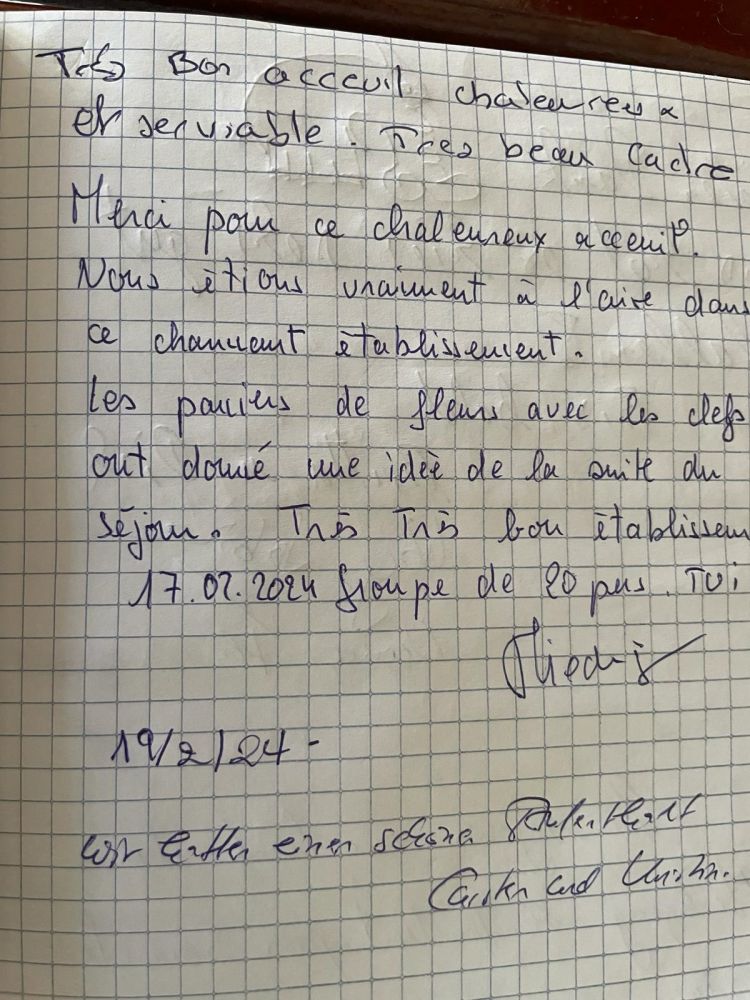 Très Bon acceuil chaleureux
et serviable. Tres beau Cadre
Merci pour ce chaleureux acceuil.
Nous étions vraiment à l'aise dans
ce charmant établissement.
Les paniers de fleurs avec les clefs
ont donné une idée de la suite du
séjour. Très Très bon établissem
17.02.2024 Groupe de 20 pers.
19/2/24 -
wir hatten einen schönen Aufenthalt
Carsten und